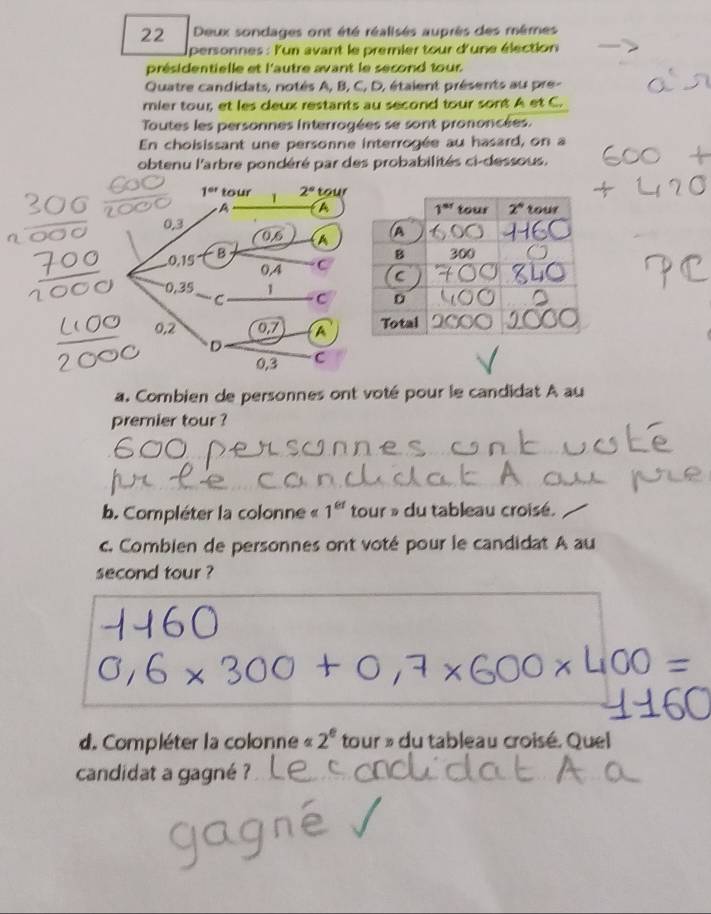 22 Deux sondages ont été réalisés auprès des mêmes
personnes : l'un avant le premier tour d'une élection
présidentielle et l'autre avant le second tour.
Quatre candidats, notés A, B, C, D, étaient présents au pre-
mier tour, et les deux restants au second tour sont A et C.
Toutes les personnes interrogées se sont prononcées.
En choisissant une personne interrogée au hasard, on a
obtenu l'arbre pondéré par des probabilités ci-dessous.
->
600 +
+ 420
300
2000
600
2000
700
2000
400
2000
1er tour 2e tour
A 1 A
0,3
0,6 A
0,15 B
0,4 C
0,35 C 1 C
0,2 0,7 A
D
0,3 C
1er tour 2e tour
A 600 1160
B 300 0
C 700 840
D 400 0
Total 2000 2000
a. Combien de personnes ont voté pour le candidat A au
premier tour ?
600 personnes ont voté
pr le candidat A au pre
b. Compléter la colonne « 1er tour » du tableau croisé.
c. Combien de personnes ont voté pour le candidat A au
second tour ?
1160
0,6 × 300 + 0,7 × 600 × 400 =
1160
d. Compléter la colonne « 2e tour » du tableau croisé. Quel
candidat a gagné ? Le candidat A a
gagné